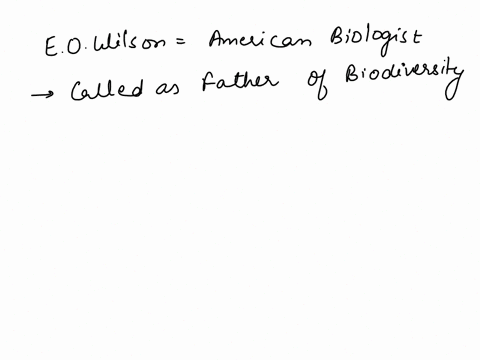 E.O. Wilson = American Biologist
→ Called as Father of Biodiversity